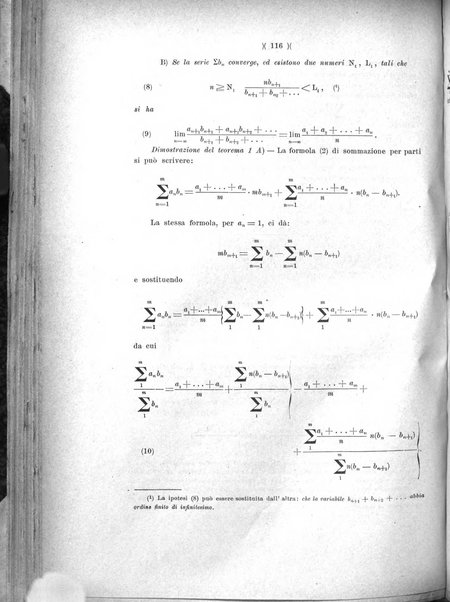 )( 116 )(
B) Se la serie Σbₙ converge, ed esistono due numeri N₁, L₁, tali che
(8) n ≧ N₁ nbₙ₊₁ / (bₙ₊₁ + bₙ₂ + . . .) < L₁, (¹)
si ha
(9) lim_{n=∞} (aₙ₊₁bₙ₊₁ + aₙ₊₂bₙ₊₂ + . . .) / (bₙ₊₁ + bₙ₊₂ + . . .) = lim_{n=∞} (a₁ + a₂ + . . . + aₙ) / n .
Dimostrazione del teorema 1 A) — La formola (2) di sommazione per parti
si può scrivere:
∑_{n=1}^{m} aₙbₙ = (a₁ + . . . + aₘ)/m · mbₘ₊₁ + ∑_{n=1}^{m} (a₁ + . . . + aₙ)/n · n(bₙ — bₙ₊₁).
La stessa formola, per aₙ = 1, ci dà:
mbₘ₊₁ = ∑_{n=1}^{m} bₙ — ∑_{n=1}^{m} n(bₙ — bₙ₊₁)
e sostituendo
∑_{n=1}^{m} aₙbₙ = (a₁+...+aₘ)/m { ∑_{1}^{m} bₙ — ∑_{1}^{m} n(bₙ — bₙ₊₁) } + ∑_{1}^{m} (a₁+...+aₙ)/n · n(bₙ — bₙ₊₁)
da cui
∑_{1}^{m} aₙbₙ / ∑_{1}^{m} bₙ = (a₁ + . . . + aₘ)/m + ∑_{1}^{m} n(bₙ — bₙ₊₁) / ∑_{1}^{m} bₙ { — (a₁ + . . . + aₘ)/m +
(10) + ∑_{1}^{m} (a₁ + . . . + aₙ)/n n(bₙ — bₙ₊₁) / ∑_{1}^{m} n(bₙ — bₙ₊₁) } .
(¹) La ipotesi (8) può essere sostituita dall' altra: che la variabile bₙ₊₁ + bₙ₊₂ + . . . abbia
ordine finito di infinitesimo.